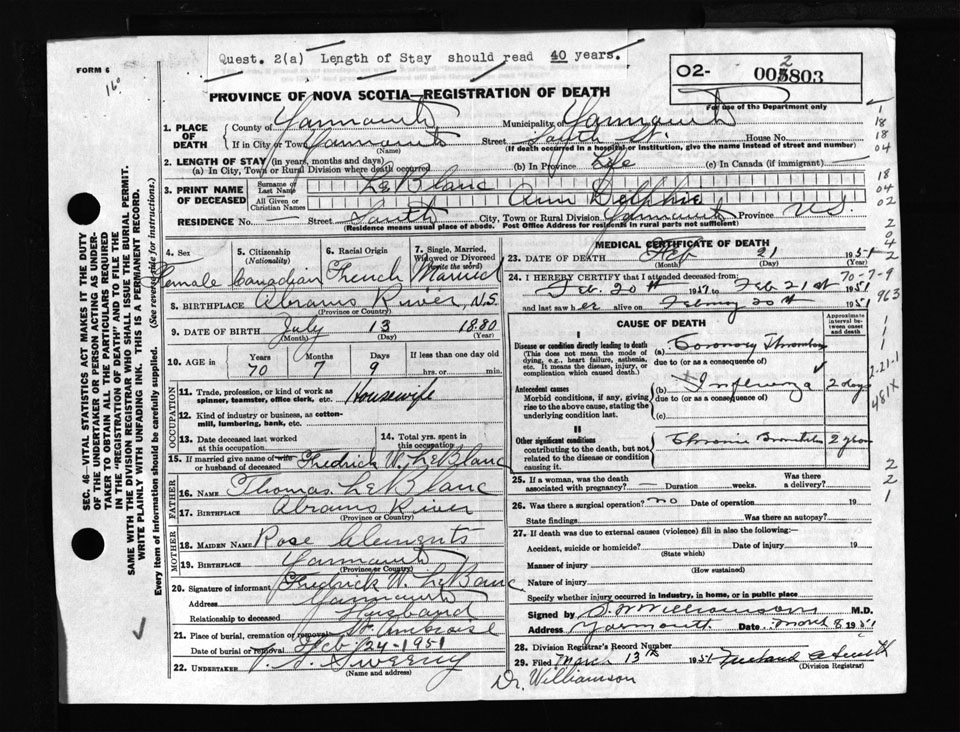 Quest. 2(a) Length of Stay should read 40 years.
FORM 6
16°
O2-
2
005803
For use of the Department only
PROVINCE OF NOVA SCOTIA—REGISTRATION OF DEATH
1. PLACE OF DEATH
County of Yarmouth Municipality of Yarmouth
If in City or Town Yarmouth Street South St. House No.
(Name) (If death occurred in a hospital or institution, give the name instead of street and number)
2. LENGTH OF STAY (in years, months and days)
(a) In City, Town or Rural Division where death occurred (b) In Province Life (c) In Canada (if immigrant) —
3. PRINT NAME OF DECEASED
Surname or Last Name LeBlanc
All Given or Christian Names Ann Delphie
RESIDENCE No. — Street South City, Town or Rural Division Yarmouth Province N.S.
(Residence means usual place of abode. Post Office Address for residents in rural parts not sufficient)
4. Sex
Female
5. Citizenship (Nationality)
Canadian
6. Racial Origin
French
7. Single, Married, Widowed or Divorced (Write the word)
Married
8. BIRTHPLACE Abrams River, N.S.
(Province or Country)
9. DATE OF BIRTH July 13 1880
(Month) (Day) (Year)
10. AGE in Years Months Days If less than one day old
70 7 9 hrs. or min.
OCCUPATION
11. Trade, profession, or kind of work as spinner, teamster, office clerk, etc. Housewife
12. Kind of industry or business, as cotton-mill, lumbering, bank, etc.
13. Date deceased last worked at this occupation
14. Total yrs. spent in this occupation
15. If married give name of wife or husband of deceased Fredrick W. LeBlanc
FATHER
16. NAME Thomas LeBlanc
17. BIRTHPLACE Abrams River
(Province or Country)
MOTHER
18. MAIDEN NAME Rose Clements
19. BIRTHPLACE Yarmouth
(Province or Country)
20. Signature of informant Fredrick W. LeBlanc
Address Yarmouth
Relationship to deceased Husband
21. Place of burial, cremation or removal St Ambroise
Date of burial or removal Feb. 24-1951
22. UNDERTAKER V. S. Sweeny
(Name and address)
MEDICAL CERTIFICATE OF DEATH
23. DATE OF DEATH Feb 21 1951
(Month) (Day) (Year)
24. I HEREBY CERTIFY that I attended deceased from:
Feb. 20th 1951 to Feb 21st 1951
and last saw her alive on 20th 1951
CAUSE OF DEATH
Approximate interval between onset and death
I
Disease or condition directly leading to death
(This does not mean the mode of dying, e.g., heart failure, asthenia, etc. It means the disease, injury, or complication which caused death.)
(a) Coronary Thrombosis
due to (or as a consequence of)
Antecedent causes
Morbid conditions, if any, giving rise to the above cause, stating the underlying condition last.
(b) Influenza 2 days
due to (or as a consequence of)
(c)
II
Other significant conditions
contributing to the death, but not related to the disease or condition causing it.
Chronic Bronchitis 2 years
25. If a woman, was the death associated with pregnancy? — Duration weeks. Was there a delivery?
26. Was there a surgical operation? no Date of operation 19
State findings Was there an autopsy?
27. If death was due to external causes (violence) fill in also the following:
Accident, suicide or homicide? Date of injury 19
(State which)
Manner of injury
(How sustained)
Nature of injury
Specify whether injury occurred in industry, in home, or in public place
Signed by Williamson M.D.
Address Yarmouth Date March 8, 1951
28. Division Registrar's Record Number
29. Filed March 13th 1951
(Division Registrar)
Dr. Williamson
SEC. 46—VITAL STATISTICS ACT MAKES IT THE DUTY
OF THE UNDERTAKER OR PERSON ACTING AS UNDER-
TAKER TO OBTAIN ALL THE PARTICULARS REQUIRED
IN THE "REGISTRATION OF DEATH" AND TO FILE THE
SAME WITH THE DIVISION REGISTRAR WHO SHALL ISSUE THE BURIAL PERMIT.
WRITE PLAINLY WITH UNFADING INK. THIS IS A PERMANENT RECORD.
Every item of information should be carefully supplied. (See reverse side for instructions.)
1
18
18
04
18
04
02
2
0
4
2
70-7-9
963
1
1
1
2-21-1
481X
2
2
1